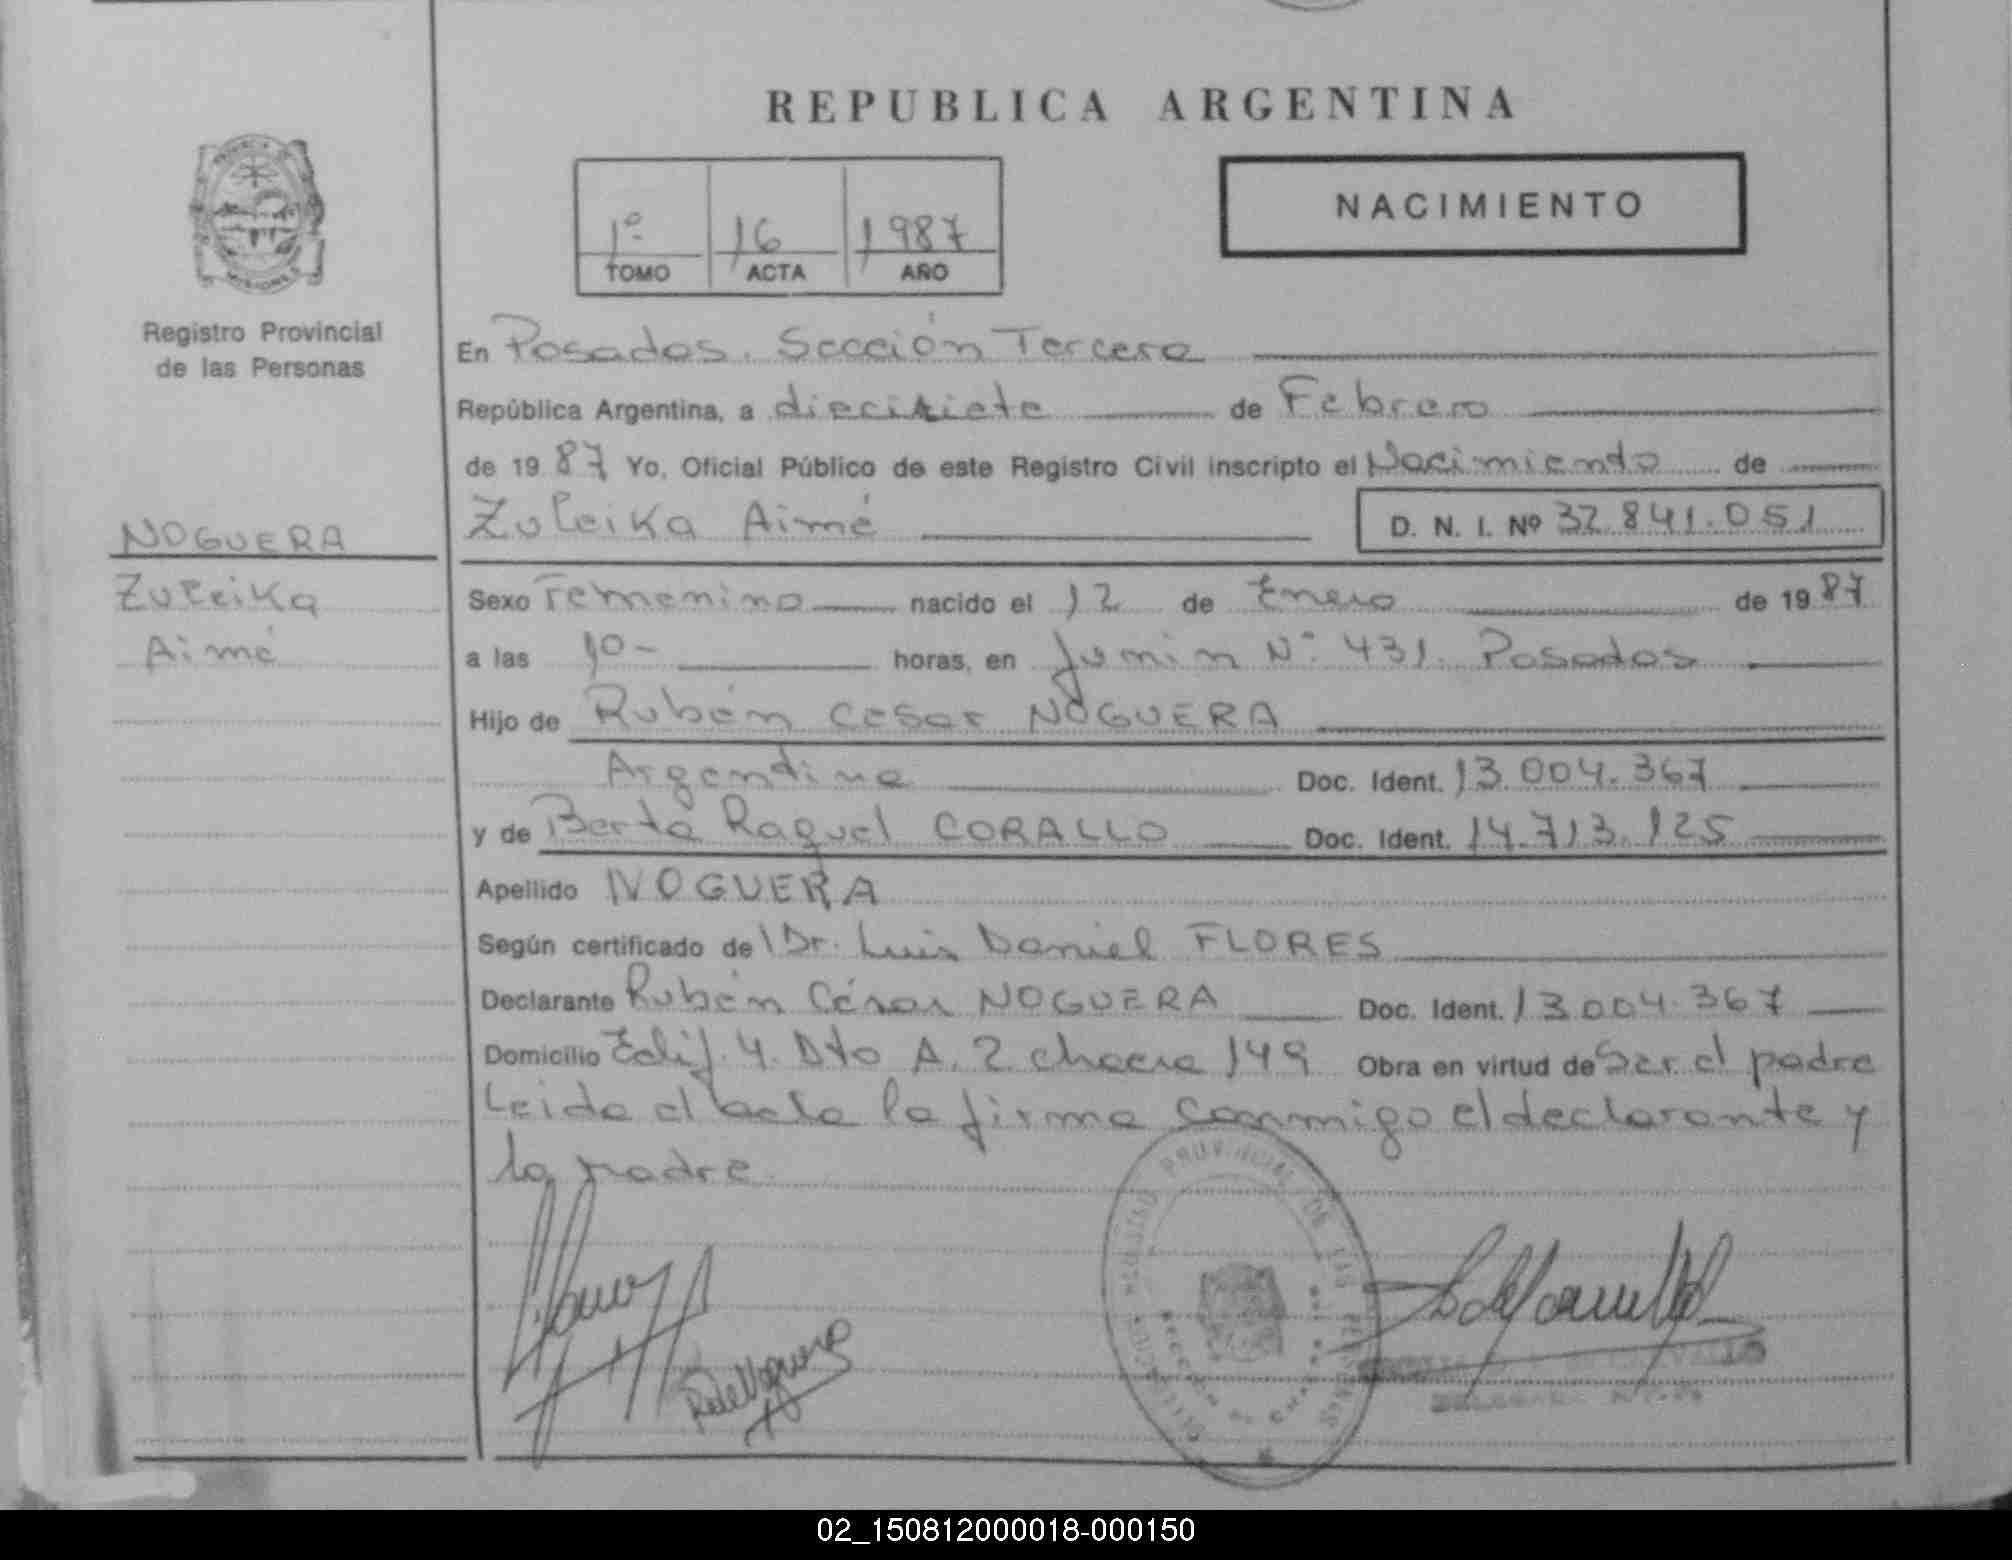 REPUBLICA ARGENTINA
NACIMIENTO
1º 16 1987
TOMO ACTA AÑO
PROVINCIA DE
MISIONES
Registro Provincial
de las Personas
En Posadas. Sección Tercera
República Argentina, a diecisiete de Febrero
de 19 87 Yo, Oficial Público de este Registro Civil inscripto el Nacimiento de
Zuleika Aimé D. N. I. Nº 32.841.051
NOGUERA
Zuleika
Aimé
Sexo Femenino nacido el 12 de Enero de 19 87
a las 10- horas, en Junin Nº 431. Posadas
Hijo de Rubén Cesar NOGUERA
Argentina Doc. Ident. 13.004.367
y de Berta Raquel CORALLO Doc. Ident. 14.713.125
Apellido NOGUERA
Según certificado de Dr. Luis Daniel FLORES
Declarante Rubén César NOGUERA Doc. Ident. 13.004.367
Domicilio Edif. 4. Dto A. 2 chacra 149 Obra en virtud de Ser el padre
Leida el acta la firma conmigo el declarante y
la madre.
REGISTRO PROVINCIAL DE LAS PERSONAS
02_150812000018-000150